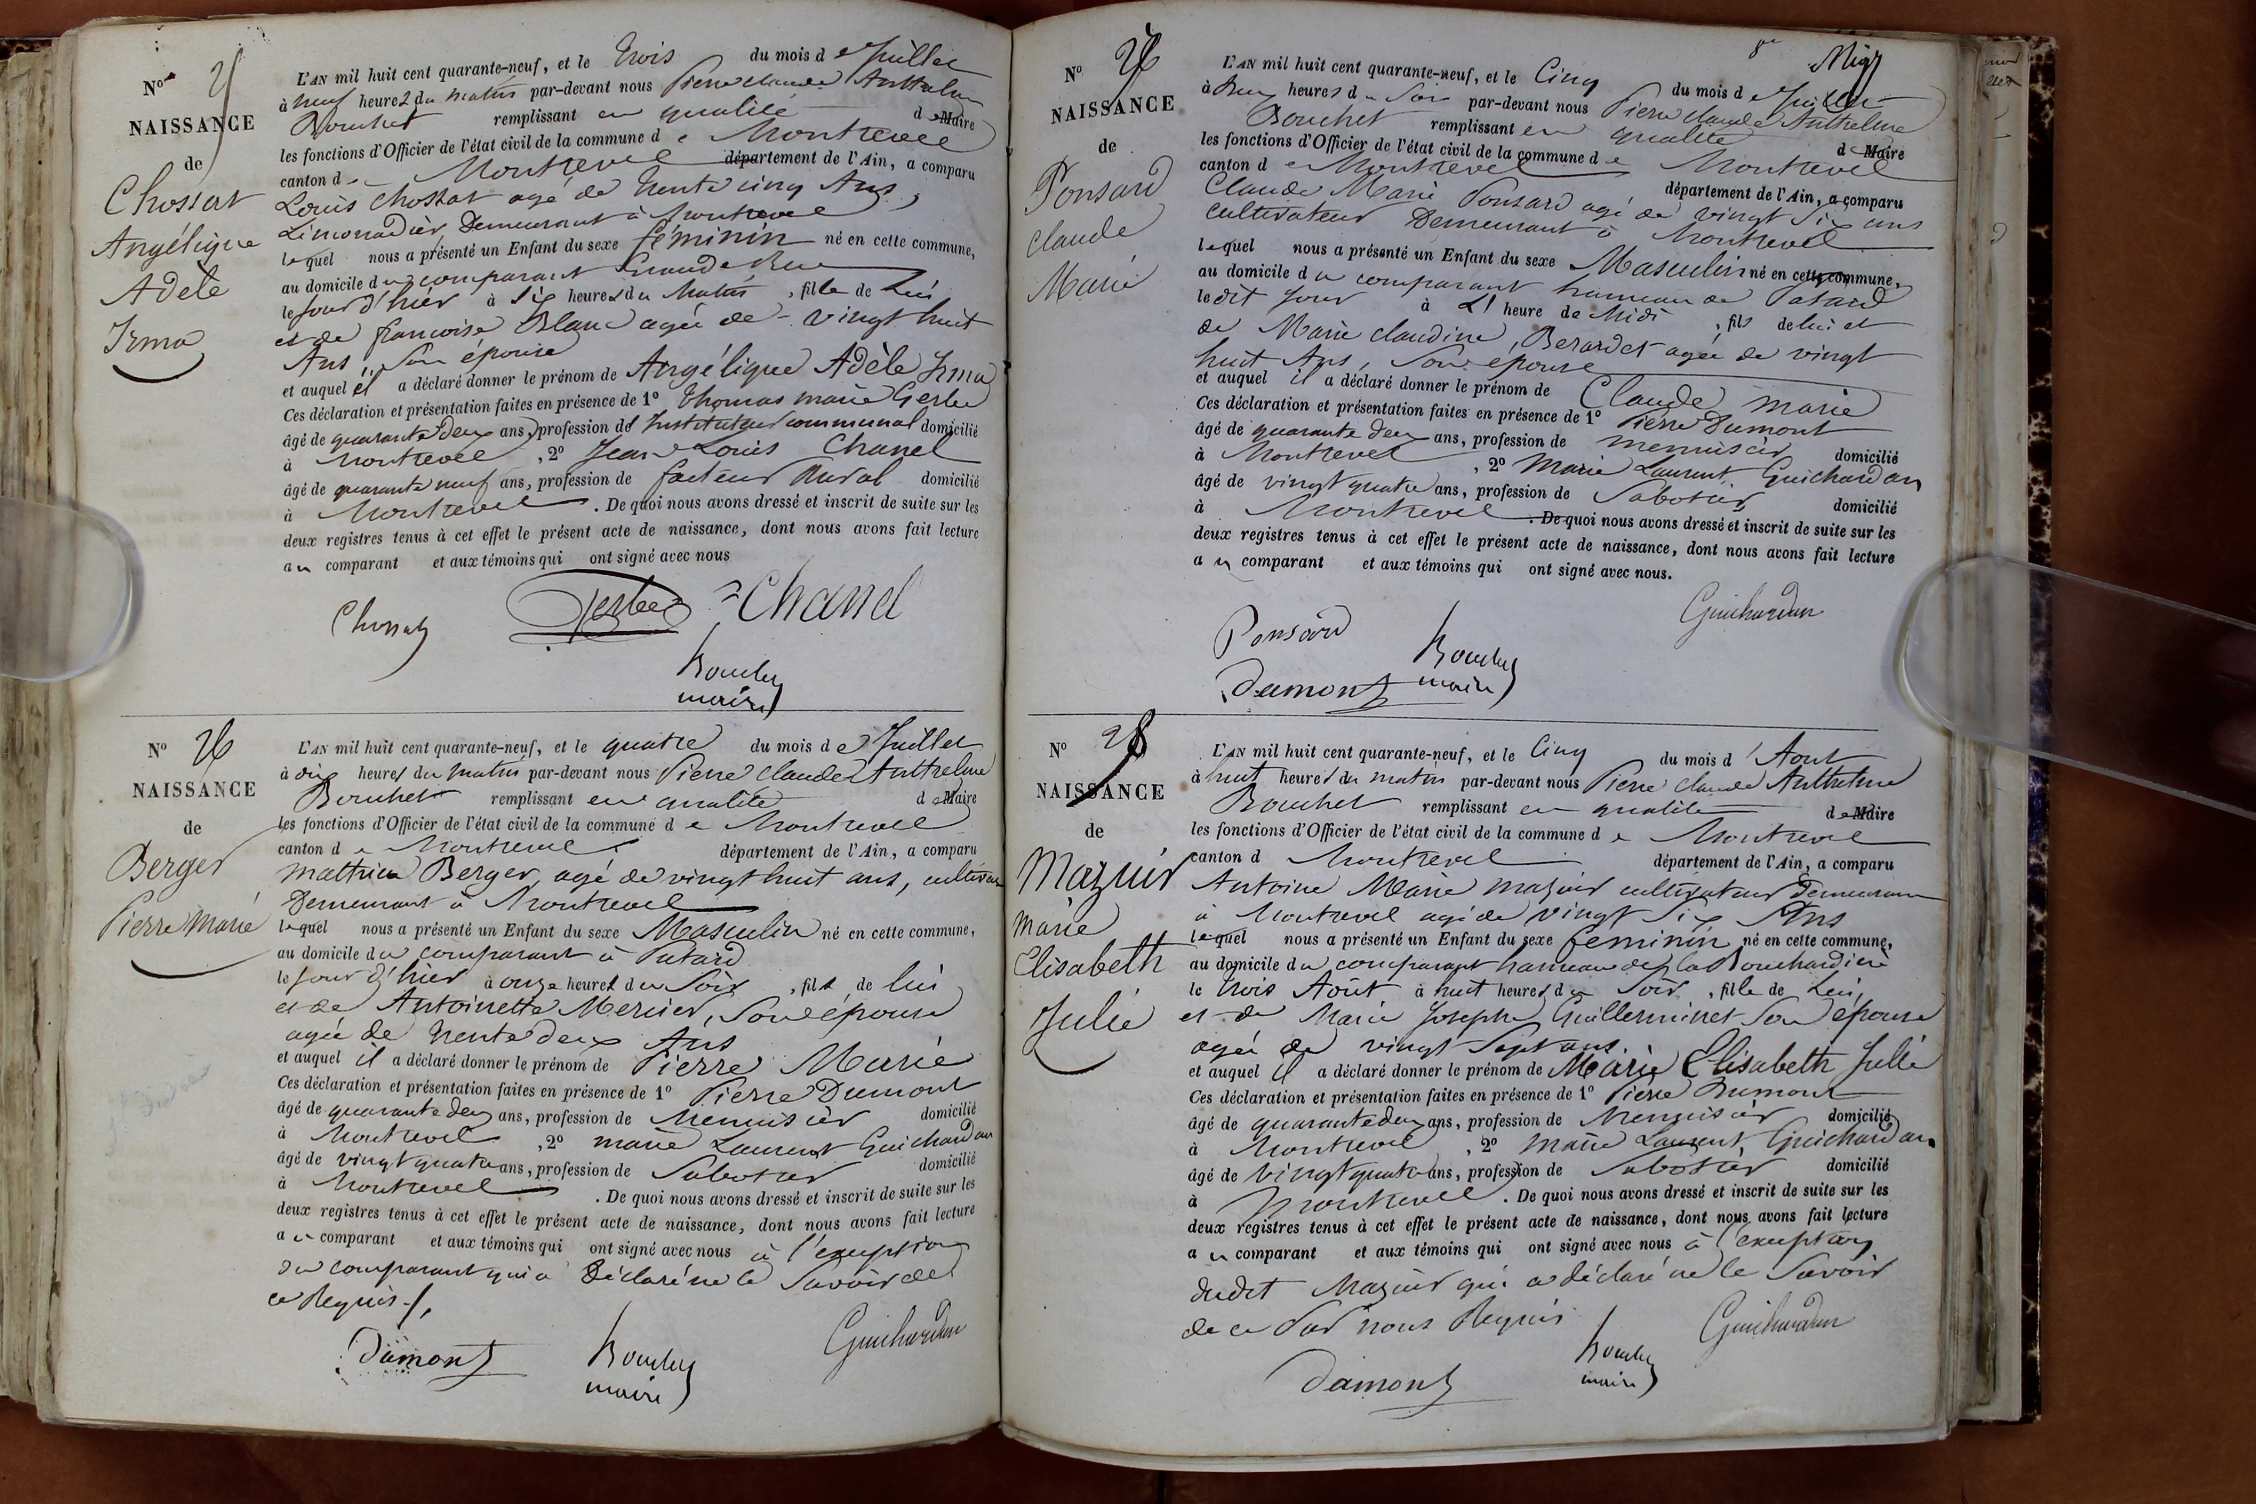 N°
NAISSANCE
de
Chossat
Angélique
Adèle
Irma
L'AN mil huit cent quarante-neuf, et le trois du mois de Juillet
à neuf heures du matin par-devant nous Pierre Claude Anthelme
Bouchet remplissant en qualité de Maire
les fonctions d'Officier de l'état civil de la commune de Montrevel
canton de Montrevel département de l'Ain, a comparu
Louis Chossat agé de trente cinq Ans,
Limonadier, Demeurant à Montrevel
lequel nous a présenté un Enfant du sexe féminin né en cette commune,
au domicile du comparant Grande Rue
le jour d'hier à Six heures du Matin, fille de Lui
et de françoise Blanc agée de vingt huit
Ans, Son épouse
et auquel il a déclaré donner le prénom de Angélique Adèle Irma
Ces déclaration et présentation faites en présence de 1° Thomas marie Gerbe
âgé de quarante deux ans, profession d' Instituteur communal domicilié
à Montrevel, 2° Jean Louis Chanel
âgé de quarante neuf ans, profession de facteur Rural domicilié
à Montrevel. De quoi nous avons dressé et inscrit de suite sur les
deux registres tenus à cet effet le présent acte de naissance, dont nous avons fait lecture
au comparant et aux témoins qui ont signé avec nous
Chossat Gerbe Chanel
Bouchet
maire
N° 26
NAISSANCE
de
Berger
Pierre Marie
L'AN mil huit cent quarante-neuf, et le quatre du mois de Juillet
à dix heures du matin par-devant nous Pierre Claude Anthelme
Bouchet remplissant en qualité de Maire
les fonctions d'Officier de l'état civil de la commune de Montrevel
canton de Montrevel département de l'Ain, a comparu
Mathieu Berger, agé de vingt huit ans, cultivateur
Demeurant à Montrevel
lequel nous a présenté un Enfant du sexe Masculin né en cette commune,
au domicile du comparant à Patard
le jour d'hier à onze heures du Soir, fils de lui
et de Antoinette Mercier, Son épouse
agée de trente deux Ans
et auquel il a déclaré donner le prénom de Pierre Marie
Ces déclaration et présentation faites en présence de 1° Pierre Dumont
âgé de quarante deux ans, profession de Menuisier domicilié
à Montrevel, 2° marie Laurent Guichardan
âgé de vingt quatre ans, profession de Sabotier domicilié
à Montrevel. De quoi nous avons dressé et inscrit de suite sur les
deux registres tenus à cet effet le présent acte de naissance, dont nous avons fait lecture
au comparant et aux témoins qui ont signé avec nous à l'exception
du comparant qui a déclaré ne le Savoir de
ce Requis
Dumont Bouchet Guichardan
maire
N°
NAISSANCE
de
Ponsard
Claude
Marie
L'AN mil huit cent quarante-neuf, et le Cinq du mois de Juillet
à heures du Soir par-devant nous Pierre Claude Anthelme
Bouchet remplissant en qualité de Maire
les fonctions d'Officier de l'état civil de la commune de Montrevel
canton de Montrevel département de l'Ain, a comparu
Claude Marie Ponsard agé de vingt Six ans
cultivateur Demeurant à Montrevel
lequel nous a présenté un Enfant du sexe Masculin né en cette commune,
au domicile du comparant hameau de Patard
le dit jour à L' heure de Midi, fils de lui et
de Marie Claudine Berardet agée de vingt
huit Ans, Son épouse
et auquel il a déclaré donner le prénom de Claude Marie
Ces déclaration et présentation faites en présence de 1° Pierre Dumont
âgé de quarante deux ans, profession de menuisier domicilié
à Montrevel, 2° Marie Laurent Guichardan
âgé de vingt quatre ans, profession de Sabotier domicilié
à Montrevel. De quoi nous avons dressé et inscrit de suite sur les
deux registres tenus à cet effet le présent acte de naissance, dont nous avons fait lecture
au comparant et aux témoins qui ont signé avec nous.
Guichardan
Ponsard Bouchet
Dumont maire
N° 28
NAISSANCE
de
Mazuir
Marie
Elisabeth
Julie
L'AN mil huit cent quarante-neuf, et le Cinq du mois d'Aout
à huit heures du matin par-devant nous Pierre Claude Anthelme
Bouchet remplissant en qualité de Maire
les fonctions d'Officier de l'état civil de la commune de Montrevel
canton d Montrevel département de l'Ain, a comparu
Antoine Marie Mazuir cultivateur Demeurant
à Montrevel agé de vingt Six Ans
lequel nous a présenté un Enfant du sexe féminin né en cette commune,
au domicile du comparant hameau de la Bouchardière
le trois Août à huit heures du Soir, fille de Lui,
et de Marie Josephe Guillerminet Son épouse
agée de vingt Sept ans
et auquel il a déclaré donner le prénom de Marie Elisabeth Julie
Ces déclaration et présentation faites en présence de 1° Pierre Dumont
âgé de quarante deux ans, profession de Menuisier domicilié
à Montrevel, 2° Marie Laurent Guichardan
âgé de vingt quatre ans, profession de Sabotier domicilié
à Montrevel. De quoi nous avons dressé et inscrit de suite sur les
deux registres tenus à cet effet le présent acte de naissance, dont nous avons fait lecture
au comparant et aux témoins qui ont signé avec nous à l'exception
dudit Mazuir qui a déclaré ne le Savoir
de ce par nous Requis
Bouchet Guichardan
Dumont maire